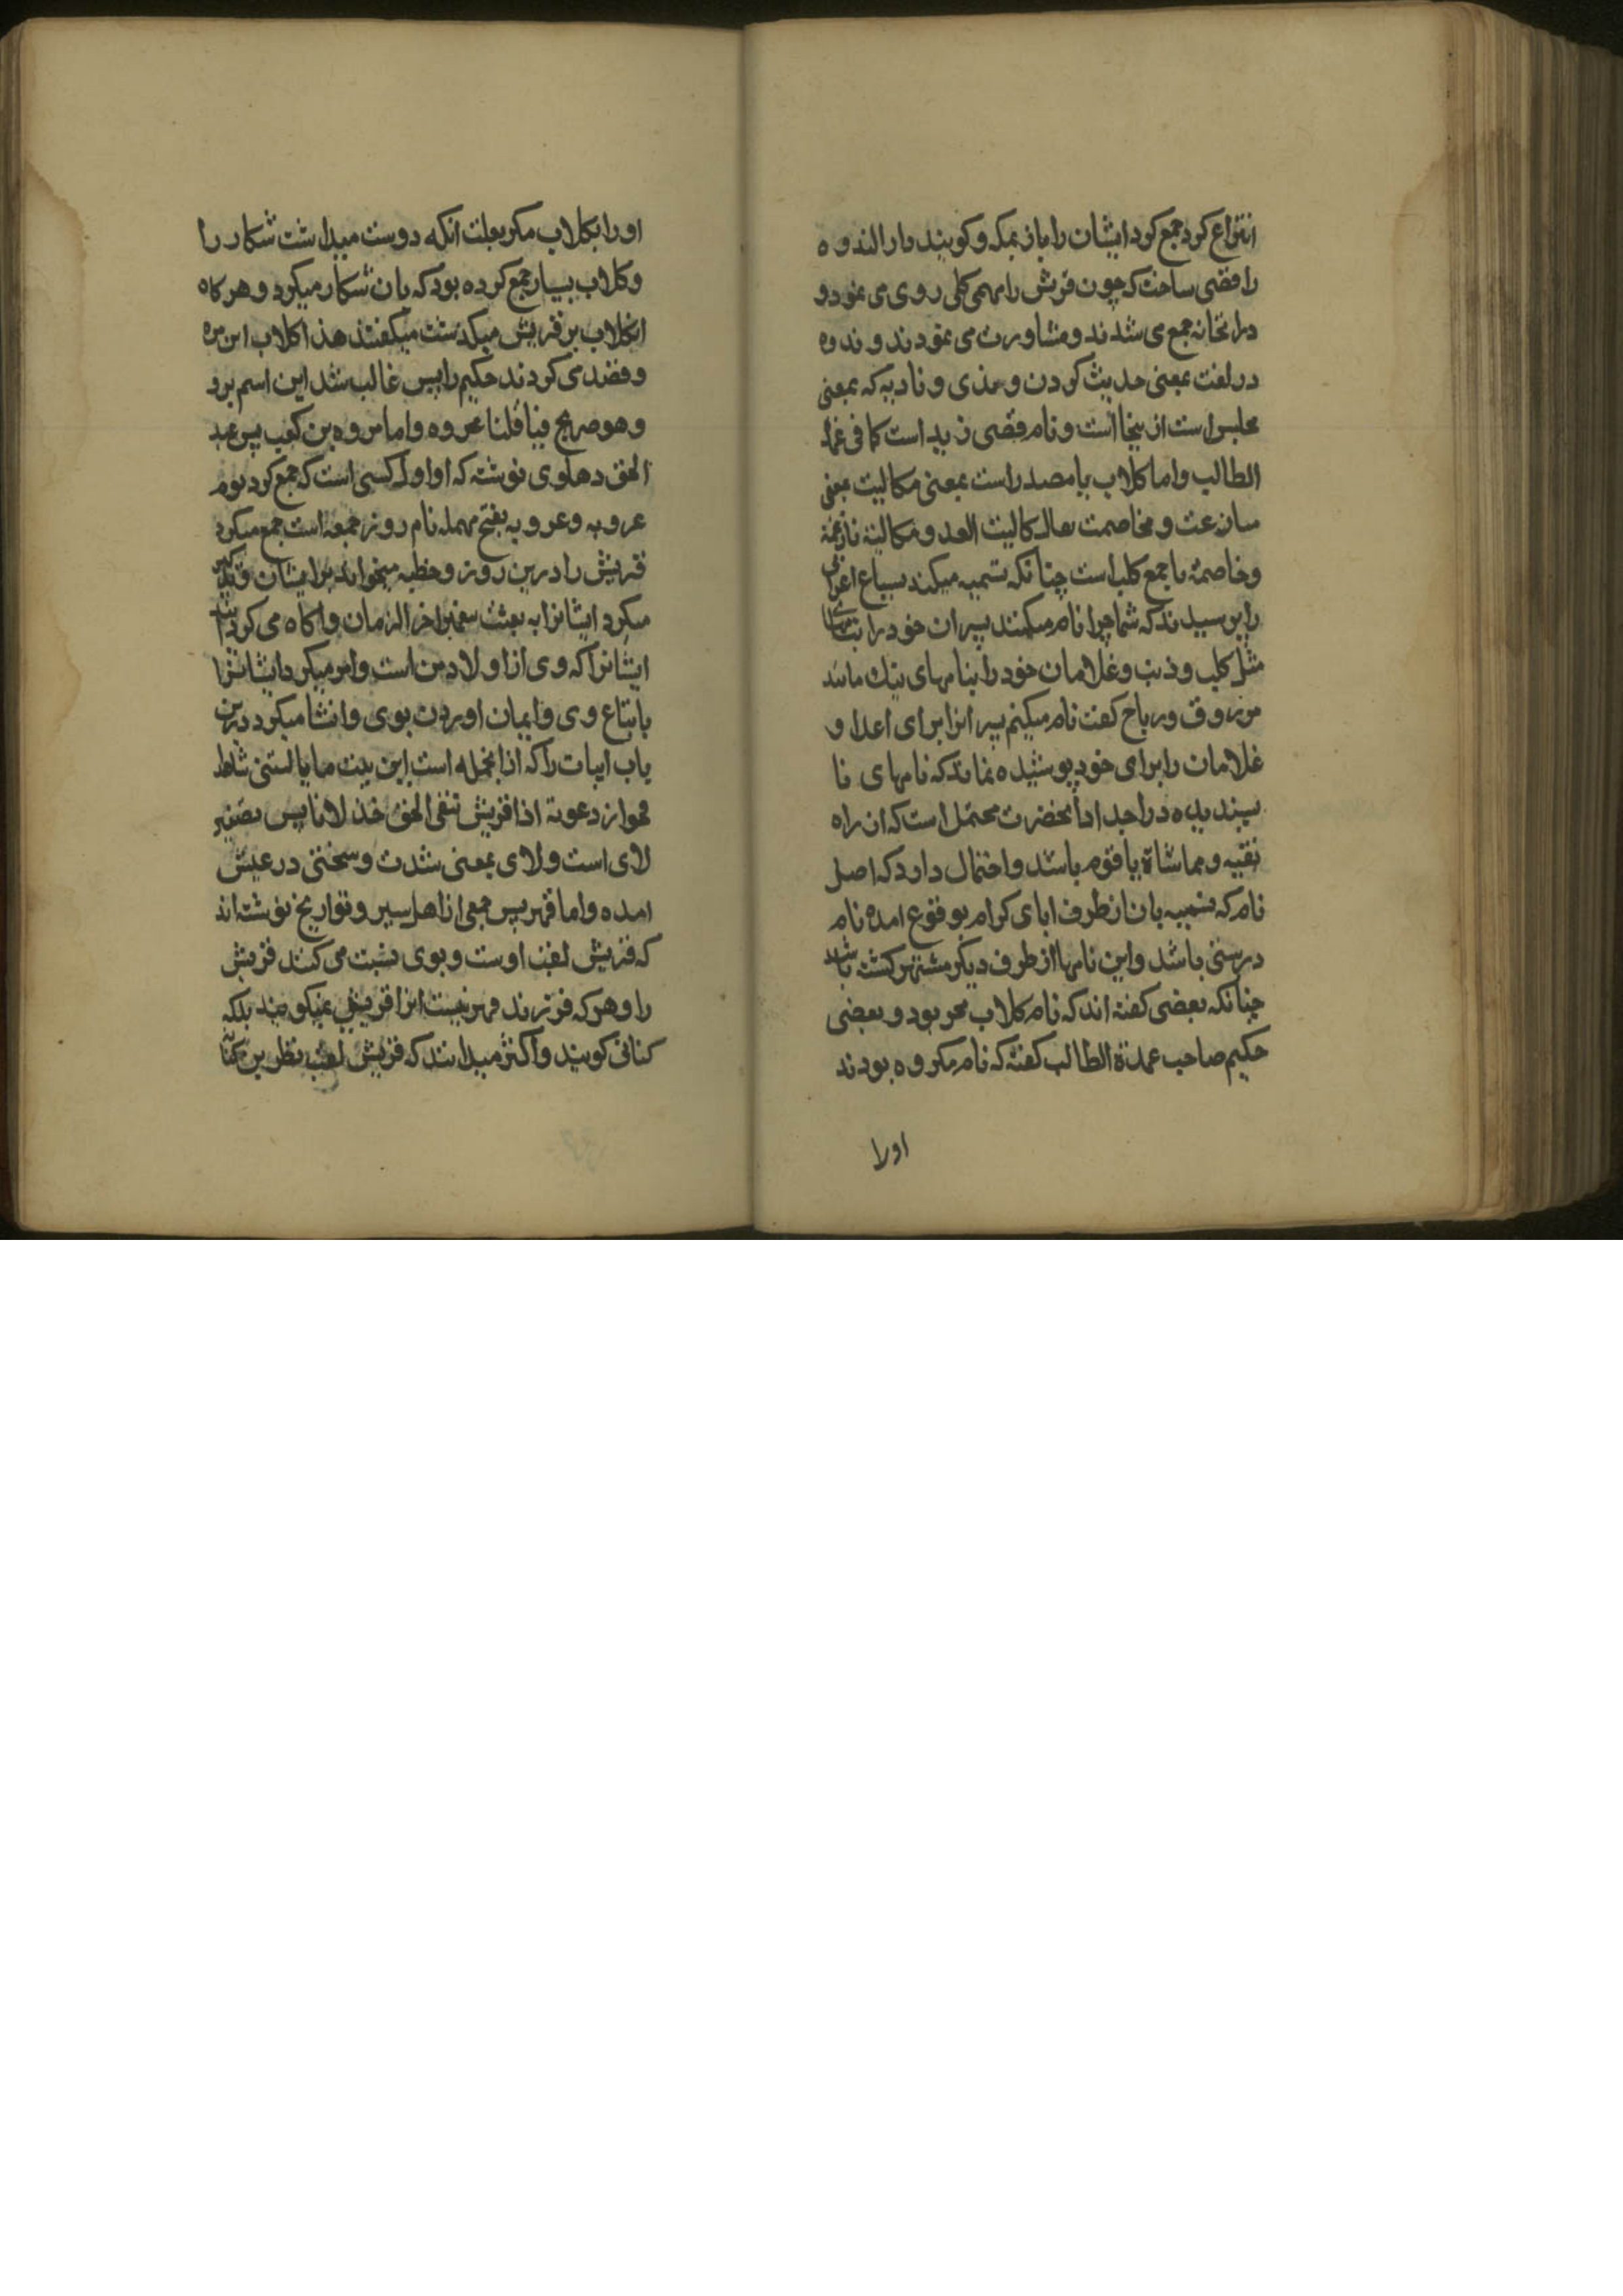 انتزاع کرد جمع کرد ایشان را باز بمکه و کویند دار الندوه
را قصی ساخت که چون قرش را مهمی کلی روی می نمود و
دران خانه جمع می شدند و مشاورت می نمودند و ندوه
در لغت بمعنی حدیث کردن و منذی و نادیه که بمعنی
مجلس است از ینجا است و نام قصی زید است کما فی عمدة
الطالب و اما کلاب یا مصدر است بمعنی مکالبت بمعنی
منازعت و مخاصمت یقال کالبت العدو مکالبة نازعته
وخاصمته یا جمع کلب است چنانکه تسمیه میکند بسباع اعرابی
را پرسیدند که شما چرا نام میکنند پسران خود را بنامهای
مثل کلب و ذئب و غلامان خود را بنامهای نیک مانند
مرزوق و رباح کفت نام میکنم پسرانرا برای اعدا و
غلامان را برای خود پوشیده نماند که نامهای نا
پسندیده در اجداد انحضرت محتمل است که ان راه
تقیه و مماشاة با قوم باشد و احتمال دارد که اصل
نام که تسمیه بان از طرف ابای کرام بوقوع امده نام
درستی باشد و این نامها از طرف دیکر مشتهر کشته باشد
چنانکه بعضی کفته اند که نام کلاب بحر بود و بعضی
حکیم صاحب عمدة الطالب کفته که نام مکروه بودند
اورا
اورا بکلاب مکر بعلت انکه دوست میداشت شکار را
و کلاب بسیار جمع کرده بود که بان شکار میکرد و هرکاه
انکلاب بر قریش میکذشت میکفتند هذا کلاب ابن مره
و قصد می کردند حکیم را پس غالب شد این اسم برو
و هو صریح فیما قلنا عروه و اما مره بن کعب پس عبد
الحق دهلوی نوشته که او اول کسی است که جمع کرد یوم
عروبه و عروبه بفتح مهمله نام روز جمعه است جمع میکرد
قریش را درین روز و خطبه میخواند برایشان و تذکیر
میکرد ایشانرا به بعثت پیغمبر اخر الزمان و اکاه می کردانید
ایشانرا که وی از اولاد من است و امر میکرد ایشانرا
باتباع وی و ایمان اوردن بوی و انشا میکرد درین
باب ابیات را که ازانجمله است این بیت ما یا لیتنی شاهد
فحواء دعوته اذا قریش تنفی الحق خذلانا پس تصغیر
لای است و لای بمعنی شدت و سختی در عیش
امده و اما فهر پس جمعی از اهل سیر و تواریخ نوشته اند
که قریش لقب اوست و بوی نسبت می کنند قریش
را و هر که فرزند فهر نیست انرا قریشی نمیکویند بلکه
کنانی کویند و اکثر میدانند که قریش لقب نظر بن کنانه